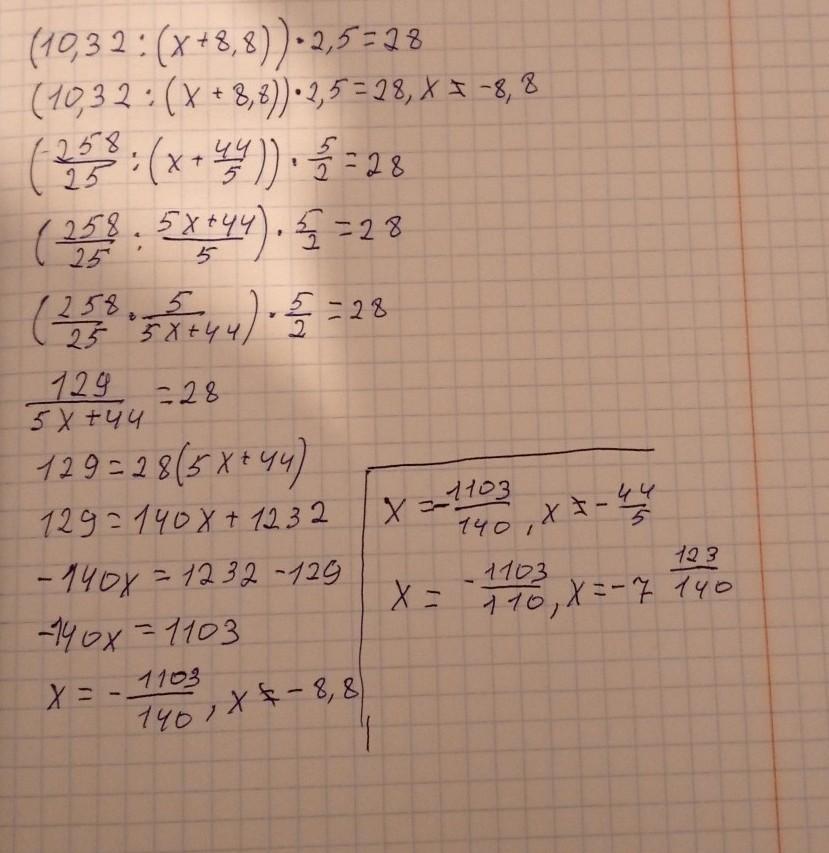 (10,32 : (x+8,8)) · 2,5 = 28
(10,32 : (x + 8,8)) · 2,5 = 28, x ≠ -8,8
(258/25 : (x + 44/5)) · 5/2 = 28
(258/25 : 5x+44/5) · 5/2 = 28
(258/25 · 5/5x+44) · 5/2 = 28
129/5x+44 = 28
129 = 28(5x+44)
129 = 140x + 1232
-140x = 1232 - 129
-140x = 1103
x = - 1103/140, x ≠ - 8,8
x = - 1103/140, x ≠ - 44/5
x = - 1103/110, x = -7 123/140